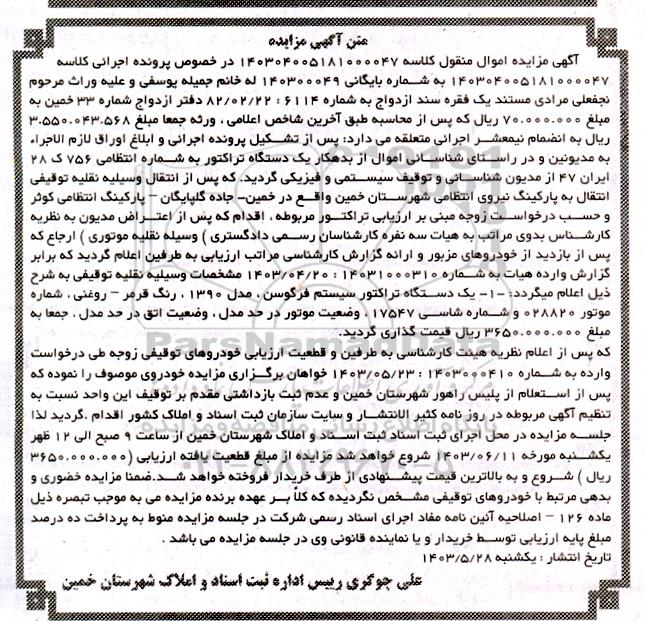 متن آگهی مزایده
آگهی مزایده اموال منقول کلاسه ۱۴۰۳۰۴۰۰۵۱۸۱۰۰۰۰۴۷ در خصوص پرونده اجرائی کلاسه
۱۴۰۳۰۴۰۰۵۱۸۱۰۰۰۰۴۷ به شماره بایگانی ۱۴۰۳۰۰۰۴۹ له خانم جمیله یوسفی و علیه وراث مرحوم
نجفعلی مرادی مستند یک فقره سند ازدواج به شماره ۶۱۱۴ : ۸۲/۰۲/۲۲ دفتر ازدواج شماره ۳۳ خمین به
مبلغ ۷۰.۰۰۰.۰۰۰ ریال که پس از محاسبه طبق آخرین شاخص اعلامی ، ورثه جمعا مبلغ ۳.۵۵۰.۰۴۳.۵۶۸
ریال به انضمام نیمعشر اجرائی متعلقه می دارد: پس از تشکیل پرونده اجرائی و ابلاغ اوراق لازم الاجراء
به مدیونین و در راستای شناسائی اموال از بدهکار یک دستگاه تراکتور به شماره انتظامی ۷۵۶ ک ۲۸
ایران ۴۷ از مدیون شناسائی و توقیف سیستمی و فیزیکی گردید. که پس از انتقال وسیله نقلیه توقیفی
انتقال به پارکینگ نیروی انتظامی شهرستان خمین واقع در خمین- جاده گلپایگان - پارکینگ انتظامی کوثر
و حسب درخواست زوجه مبنی بر ارزیابی تراکتور مربوطه ، اقدام که پس از اعتراض مدیون به نظریه
کارشناس بدوی مراتب به هیات سه نفره کارشناسان رسمی دادگستری ) وسیله نقلیه موتوری ) ارجاع که
پس از بازدید از خودروهای مزبور و ارائه گزارش کارشناسی مراتب ارزیابی به طرفین اعلام گردید که برابر
گزارش وارده هیات به شماره ۱۴۰۳۱۰۰۰۳۱۰ : ۱۴۰۳/۰۴/۲۰ مشخصات وسیله نقلیه توقیفی به شرح
ذیل اعلام میگردد: -۱- یک دستگاه تراکتور سیستم فرگوسن ، مدل ۱۳۹۰ ، رنگ قرمز – روغنی ، شماره
موتور ۰۲۸۸۲۰ و شماره شاسی ۱۷۵۴۷ ، وضعیت موتور در حد مدل ، وضعیت اتق در حد مدل . جمعا به
مبلغ ۳۶۵۰.۰۰۰.۰۰۰ ریال قیمت گذاری گردید.
که پس از اعلام نظریه هیئت کارشناسی به طرفین و قطعیت ارزیابی خودروهای توقیفی زوجه طی درخواست
وارده به شماره ۱۴۰۳۰۰۰۴۱۰ : ۱۴۰۳/۰۵/۲۳ خواهان برگزاری مزایده خودروی موصوف را نموده که
پس از استعلام از پلیس راهور شهرستان خمین و عدم ثبت بازداشتی مقدم بر توقیف این واحد نسبت به
تنظیم آگهی مربوطه در روز نامه کثیر الانتشار و سایت سازمان ثبت اسناد و املاک کشور اقدام .گردید لذا
جلسه مزایده در محل اجرای ثبت اسناد ثبت اسناد و املاک شهرستان خمین از ساعت ۹ صبح الی ۱۲ ظهر
یکشنبه مورخه ۱۴۰۳/۰۶/۱۱ شروع خواهد شد مزایده از مبلغ قطعیت یافته ارزیابی (۳۶۵۰.۰۰۰.۰۰۰
ریال ) شروع و به بالاترین قیمت پیشنهادی از طرف خریدار فروخته خواهد شد.ضمنا مزایده حضوری و
بدهی مرتبط با خودروهای توقیفی مشخص نگردیده که کلاً بر عهده برنده مزایده می به موجب تبصره ذیل
ماده ۱۲۶ – اصلاحیه آئین نامه مفاد اجرای اسناد رسمی شرکت در جلسه مزایده منوط به پرداخت ده درصد
مبلغ پایه ارزیابی توسط خریدار و یا نماینده قانونی وی در جلسه مزایده می باشد .
تاریخ انتشار : یکشنبه ۱۴۰۳/۵/۲۸
علی چوگری رییس اداره ثبت اسناد و املاک شهرستان خمین
ParsNamadData
پایگاه اطلاع رسانی مناقصه و مزایده
۰۲۱-۸۸۳۴۹۶۷۰-۵